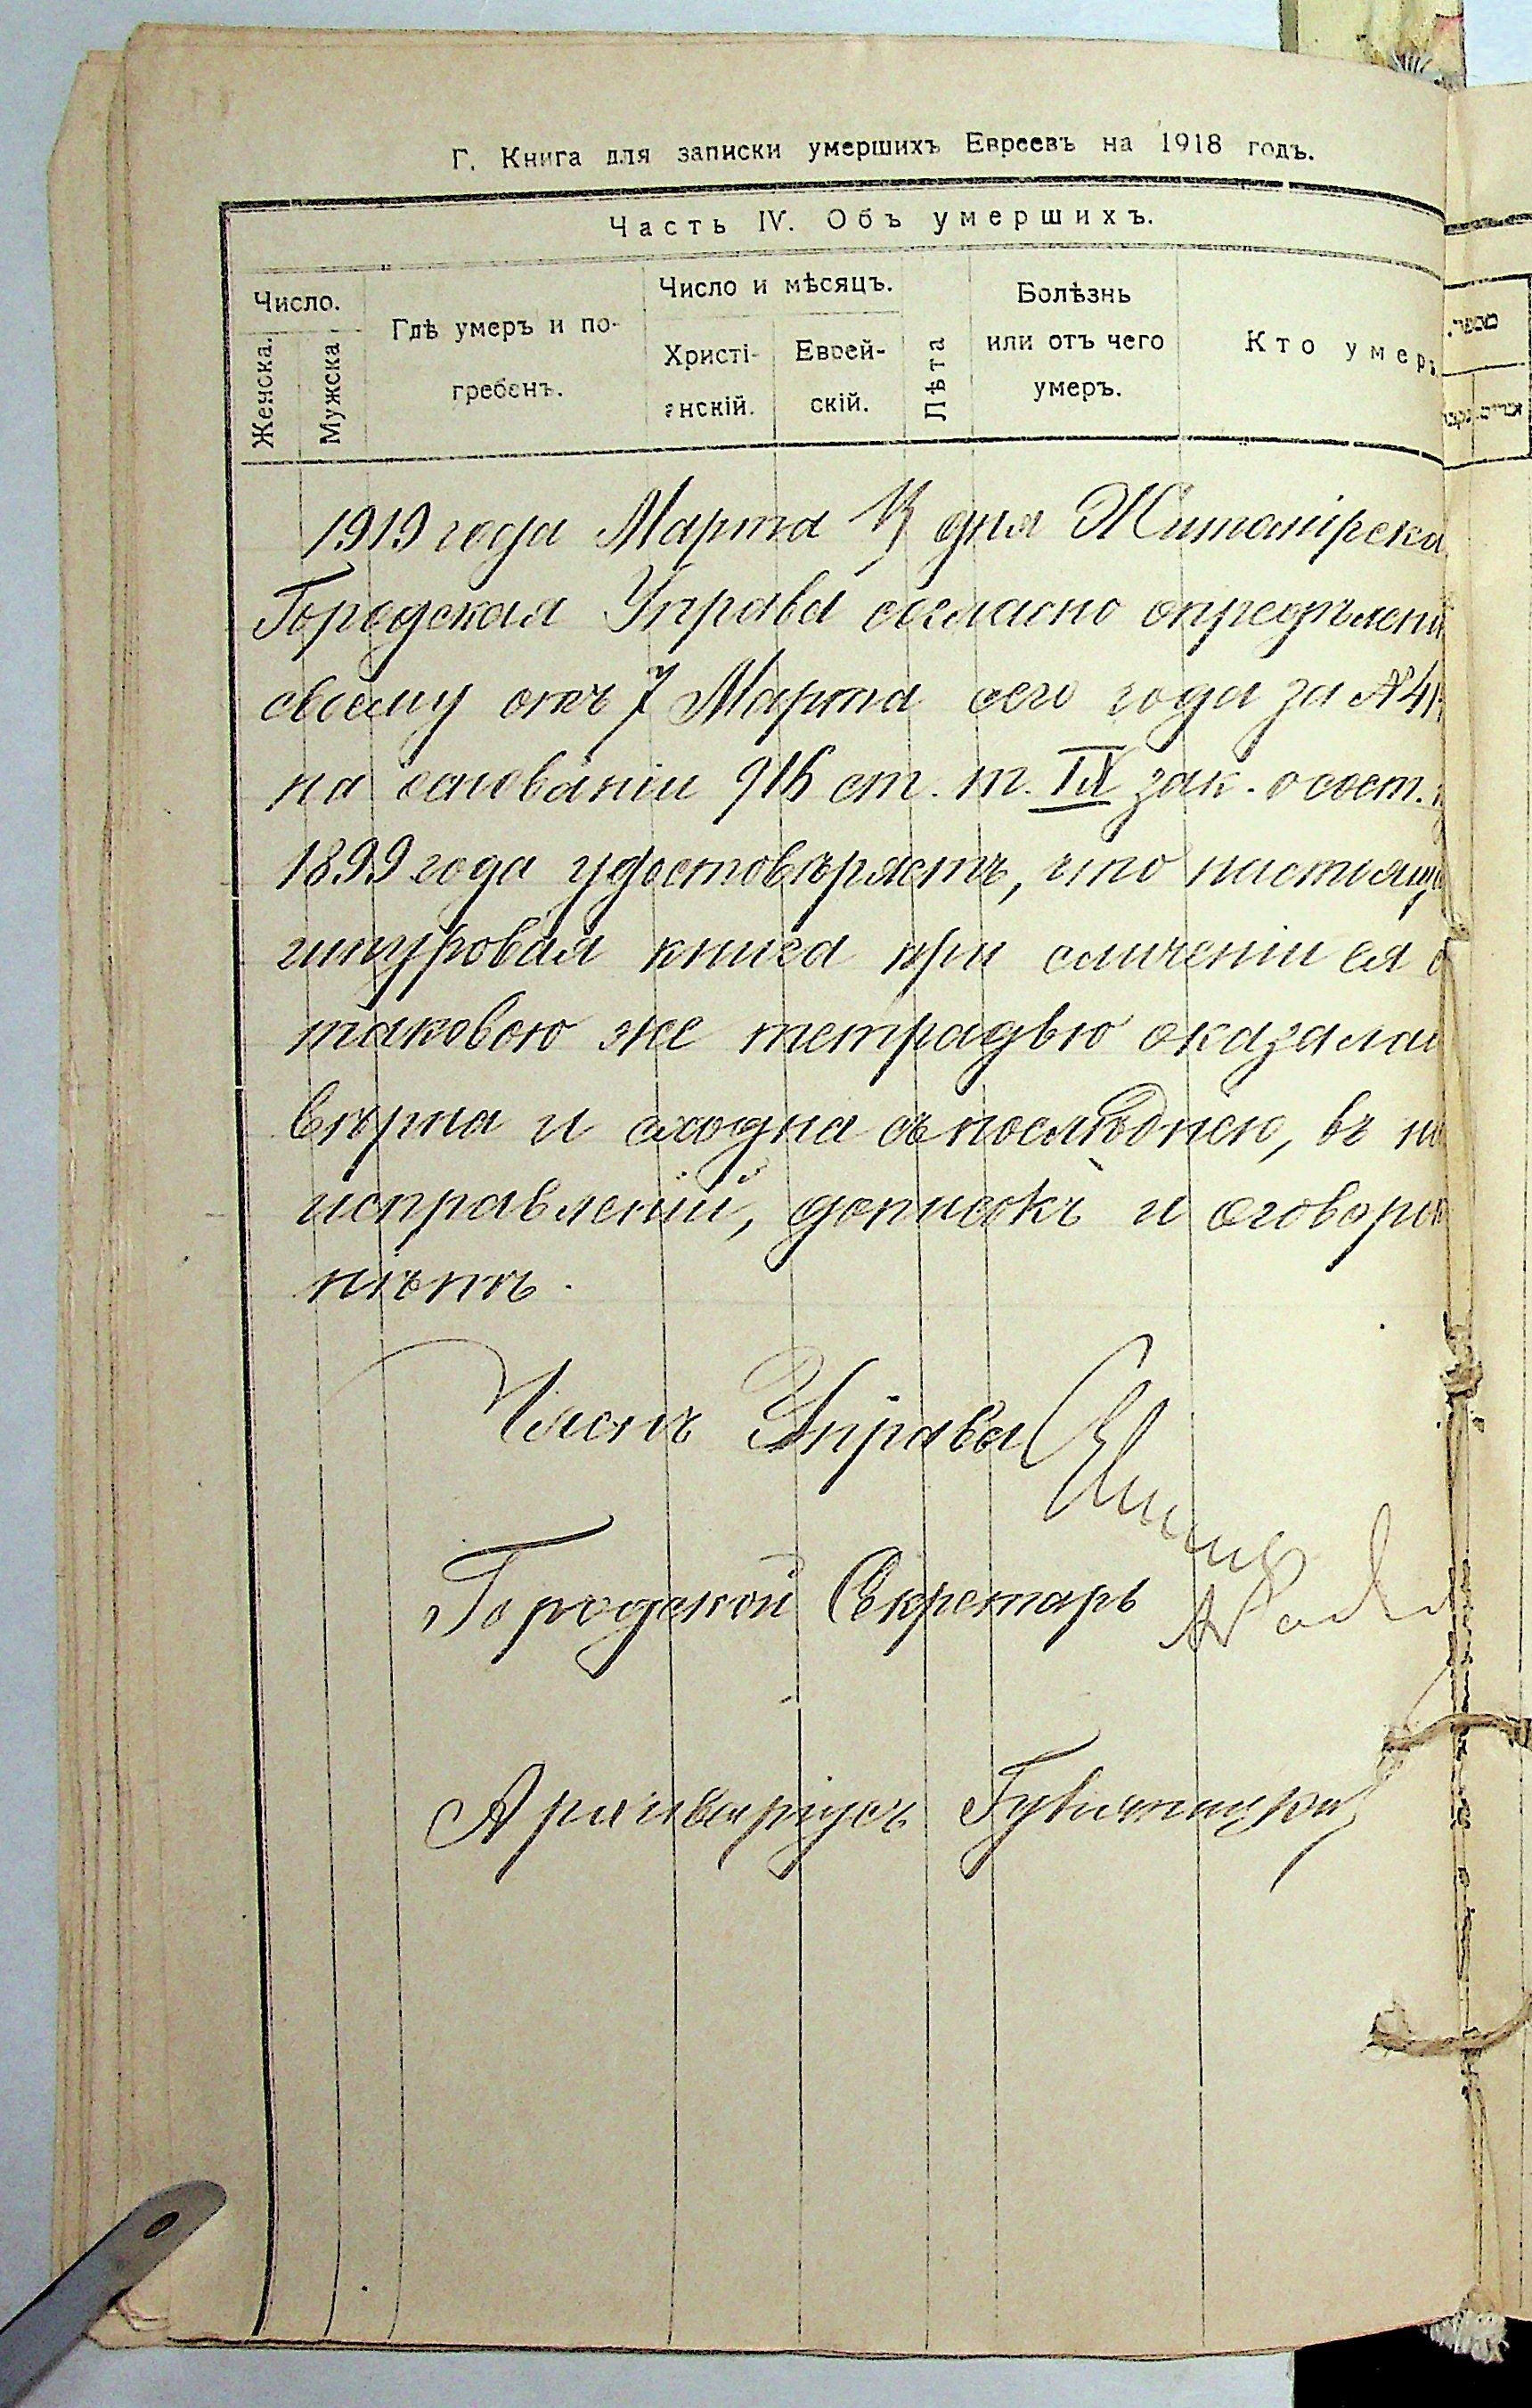 Г. Книга для записки умершихъ Евреевъ на 1918 годъ.
Часть IV. Объ умершихъ.
Число.
Женска.
Мужска
Гдѣ умеръ и по-
гребенъ.
Число и мѣсяцъ.
Христі-
анскій.
Еврей-
скій.
Лѣта
Болѣзнь
или отъ чего
умеръ.
Кто умеръ.
מספר.
1919 года Марта дня Житомірска
Городская Управа согласно опредѣлені
своему отъ 7 Марта сего года за №
на основаніи 916 ст. т. IX зак. о сост.
1899 года удостовѣряетъ, что настоящ
шнуровая книга при сличеніи ея
таковою же тетрадью оказалас
вѣрна и сходна съ послѣднею, въ
исправленій, дописокъ и оговоро
нѣтъ.
Членъ Управы
Городской Секретарь
Архиваріусъ